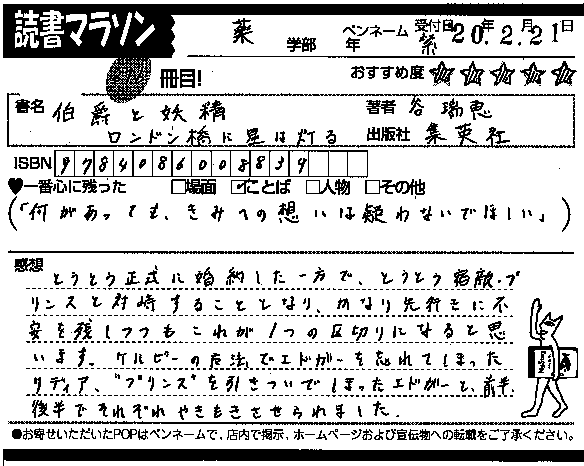 読書マラソン 薬 学部 年 ペンネーム 紫 受付日 20年2月21日
冊目! おすすめ度 ★★★★★
書名 伯爵と妖精 著者 谷 瑞恵
ロンドン橋に星は灯る 出版社 集英社
ISBN 9784086008839
♥一番心に残った □場面 ☑ことば □人物 □その他
(「何があっても、きみへの想いは疑わないでほしい」)
感想
とうとう正式に婚約した一方で、とうとう宿敵・プ
リンスと対峙することとなり、かなり先行きに不
安を残しつつもこれが1つの区切りになると思
います。ケルピーの魔法でエドガーを忘れてしまった
リディア、"プリンス"を引きついでしまったエドガーと、前半、
後半でそれぞれやきもきさせられました。
●お寄せいただいたPOPはペンネームで、店内で掲示、ホームページおよび宣伝物への転載をご了承ください。